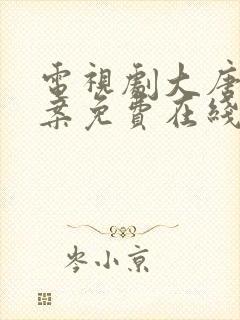 電視劇大唐
案免費在綫
岑小京